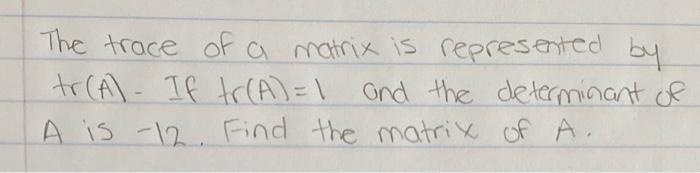 The trace of a matrix is represented by
tr(A). If tr(A)=1 and the determinant of
A is -12. Find the matrix of A.